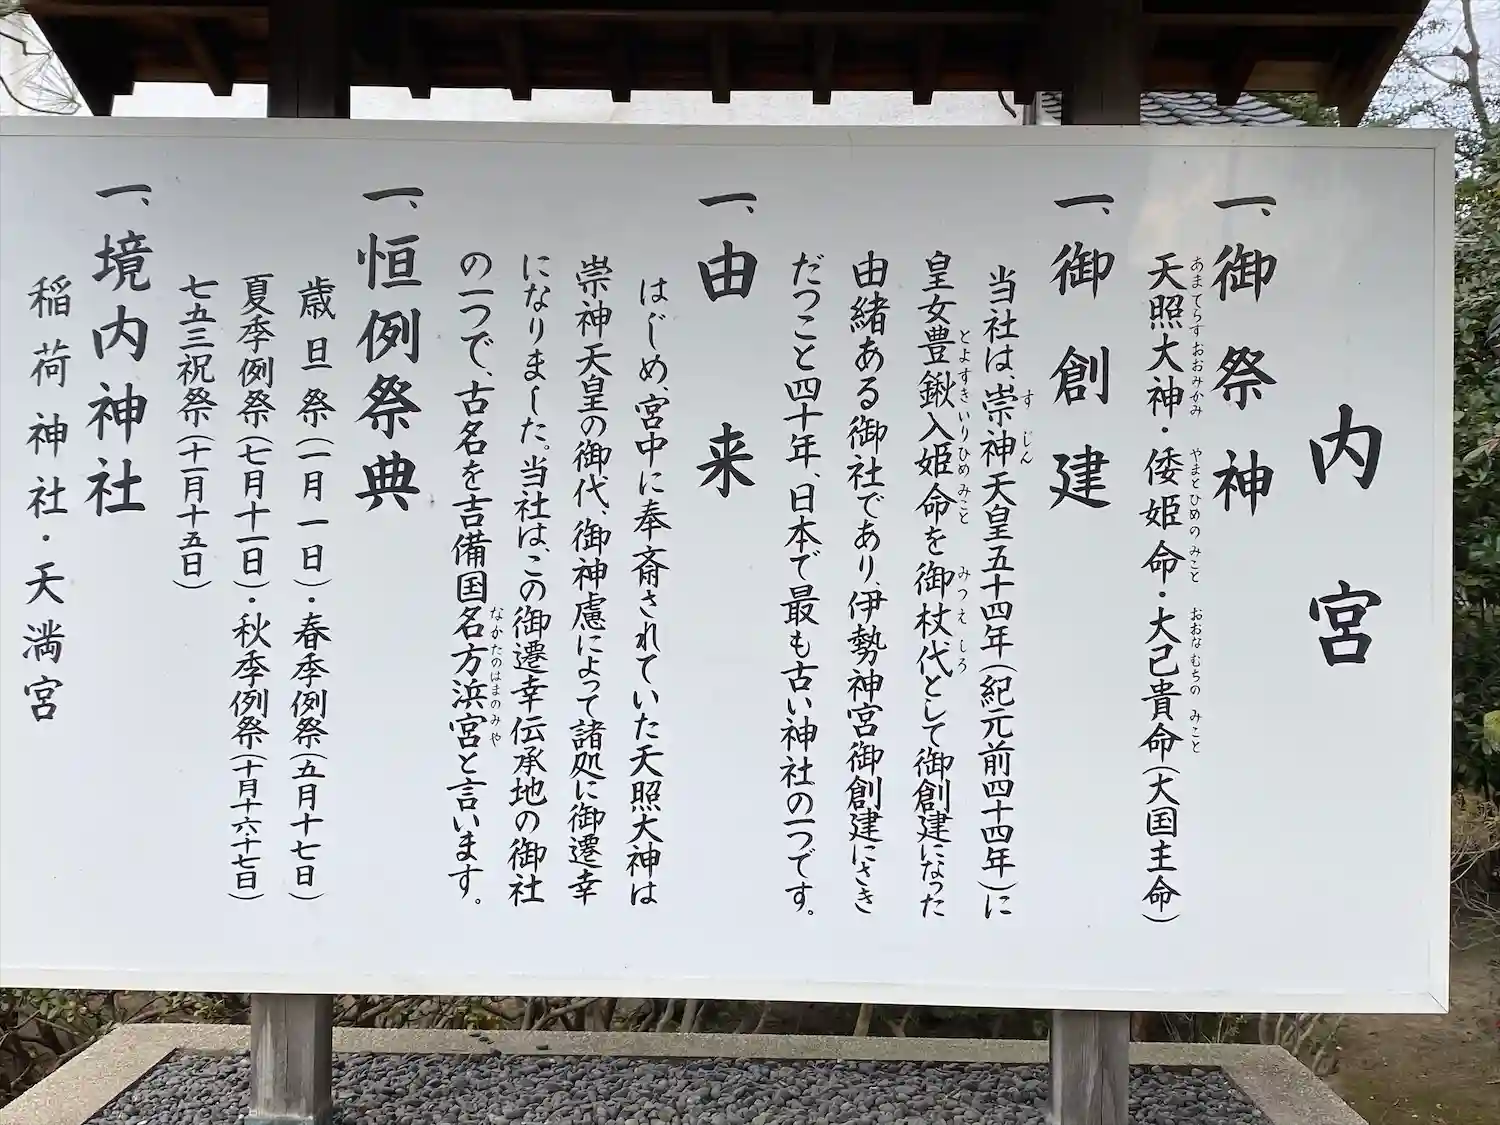 内宮
一、御祭神
天照大神・倭姫命・大己貴命(大国主命)
あまてらすおおみかみ やまとひめのみこと おおなむちのみこと
一、御創建
当社は、崇神天皇五十四年(紀元前四十四年)に
すじん
皇女豊鍬入姫命を御杖代として御創建になった
とよすきいりひめみこと みつえしろ
由緒ある御社であり、伊勢神宮御創建にさき
だつこと四十年、日本で最も古い神社の一つです。
一、由来
はじめ、宮中に奉斎されていた天照大神は
崇神天皇の御代、御神慮によって諸処に御遷幸
になりました。当社は、この御遷幸伝承地の御社
の一つで、古名を吉備国名方浜宮と言います。
なかたのはまのみや
一、恒例祭典
歳旦祭(一月一日)・春季例祭(五月十七日)
夏季例祭(七月十一日)・秋季例祭(十月十六・十七日)
七五三祝祭(十一月十五日)
一、境内神社
稲荷神社・天満宮